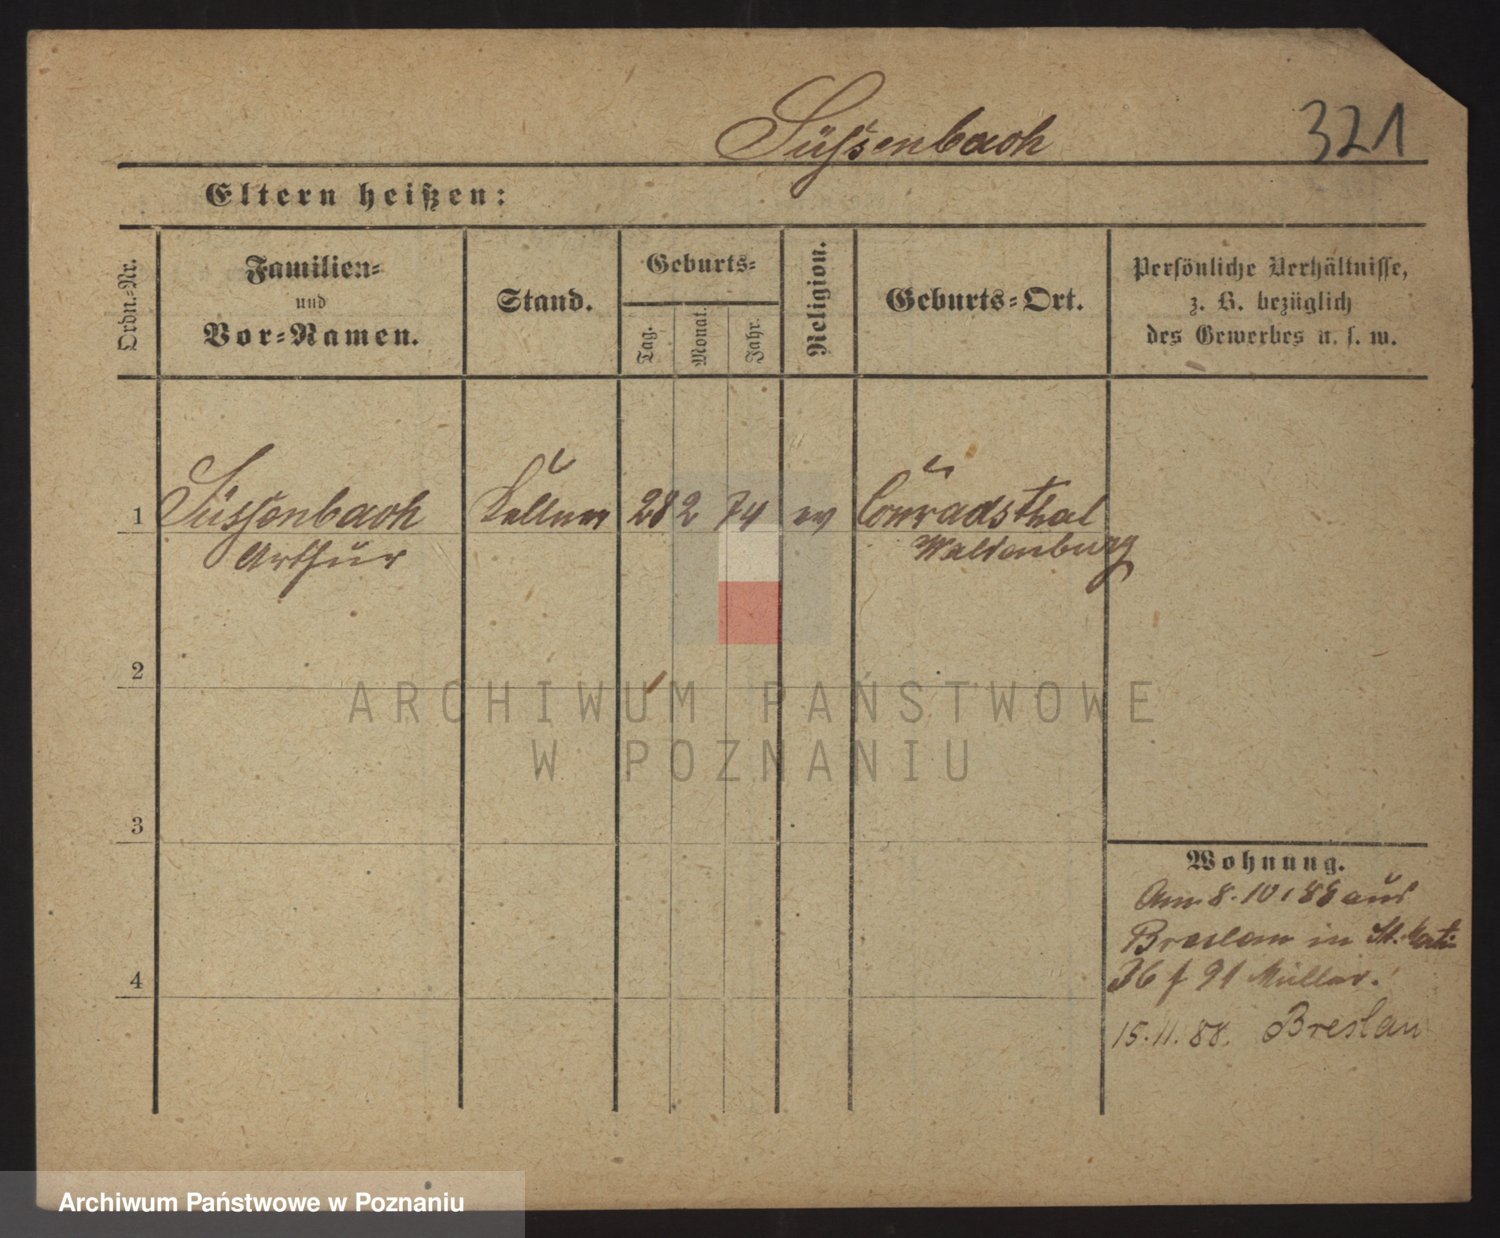 Süssenbach
321
Eltern heißen:
Ordn.-Nr.
Familien-
und
Vor-Namen.
Stand.
Geburts-
Tag.
Monat.
Jahr.
Religion.
Geburts-Ort.
Persönliche Verhältnisse,
z. B. bezüglich
des Gewerbes u. s. w.
1 Süssenbach Kellner 28 2 74 ev Conradsthal
Arthur Waldenburg
2
3
4
Wohnung.
Am 8.10.88 aus
Breslau in St. Mart:
36 f 91 Müller.
15.11.88. Breslau
ARCHIWUM PAŃSTWOWE
W POZNANIU
Archiwum Państwowe w Poznaniu